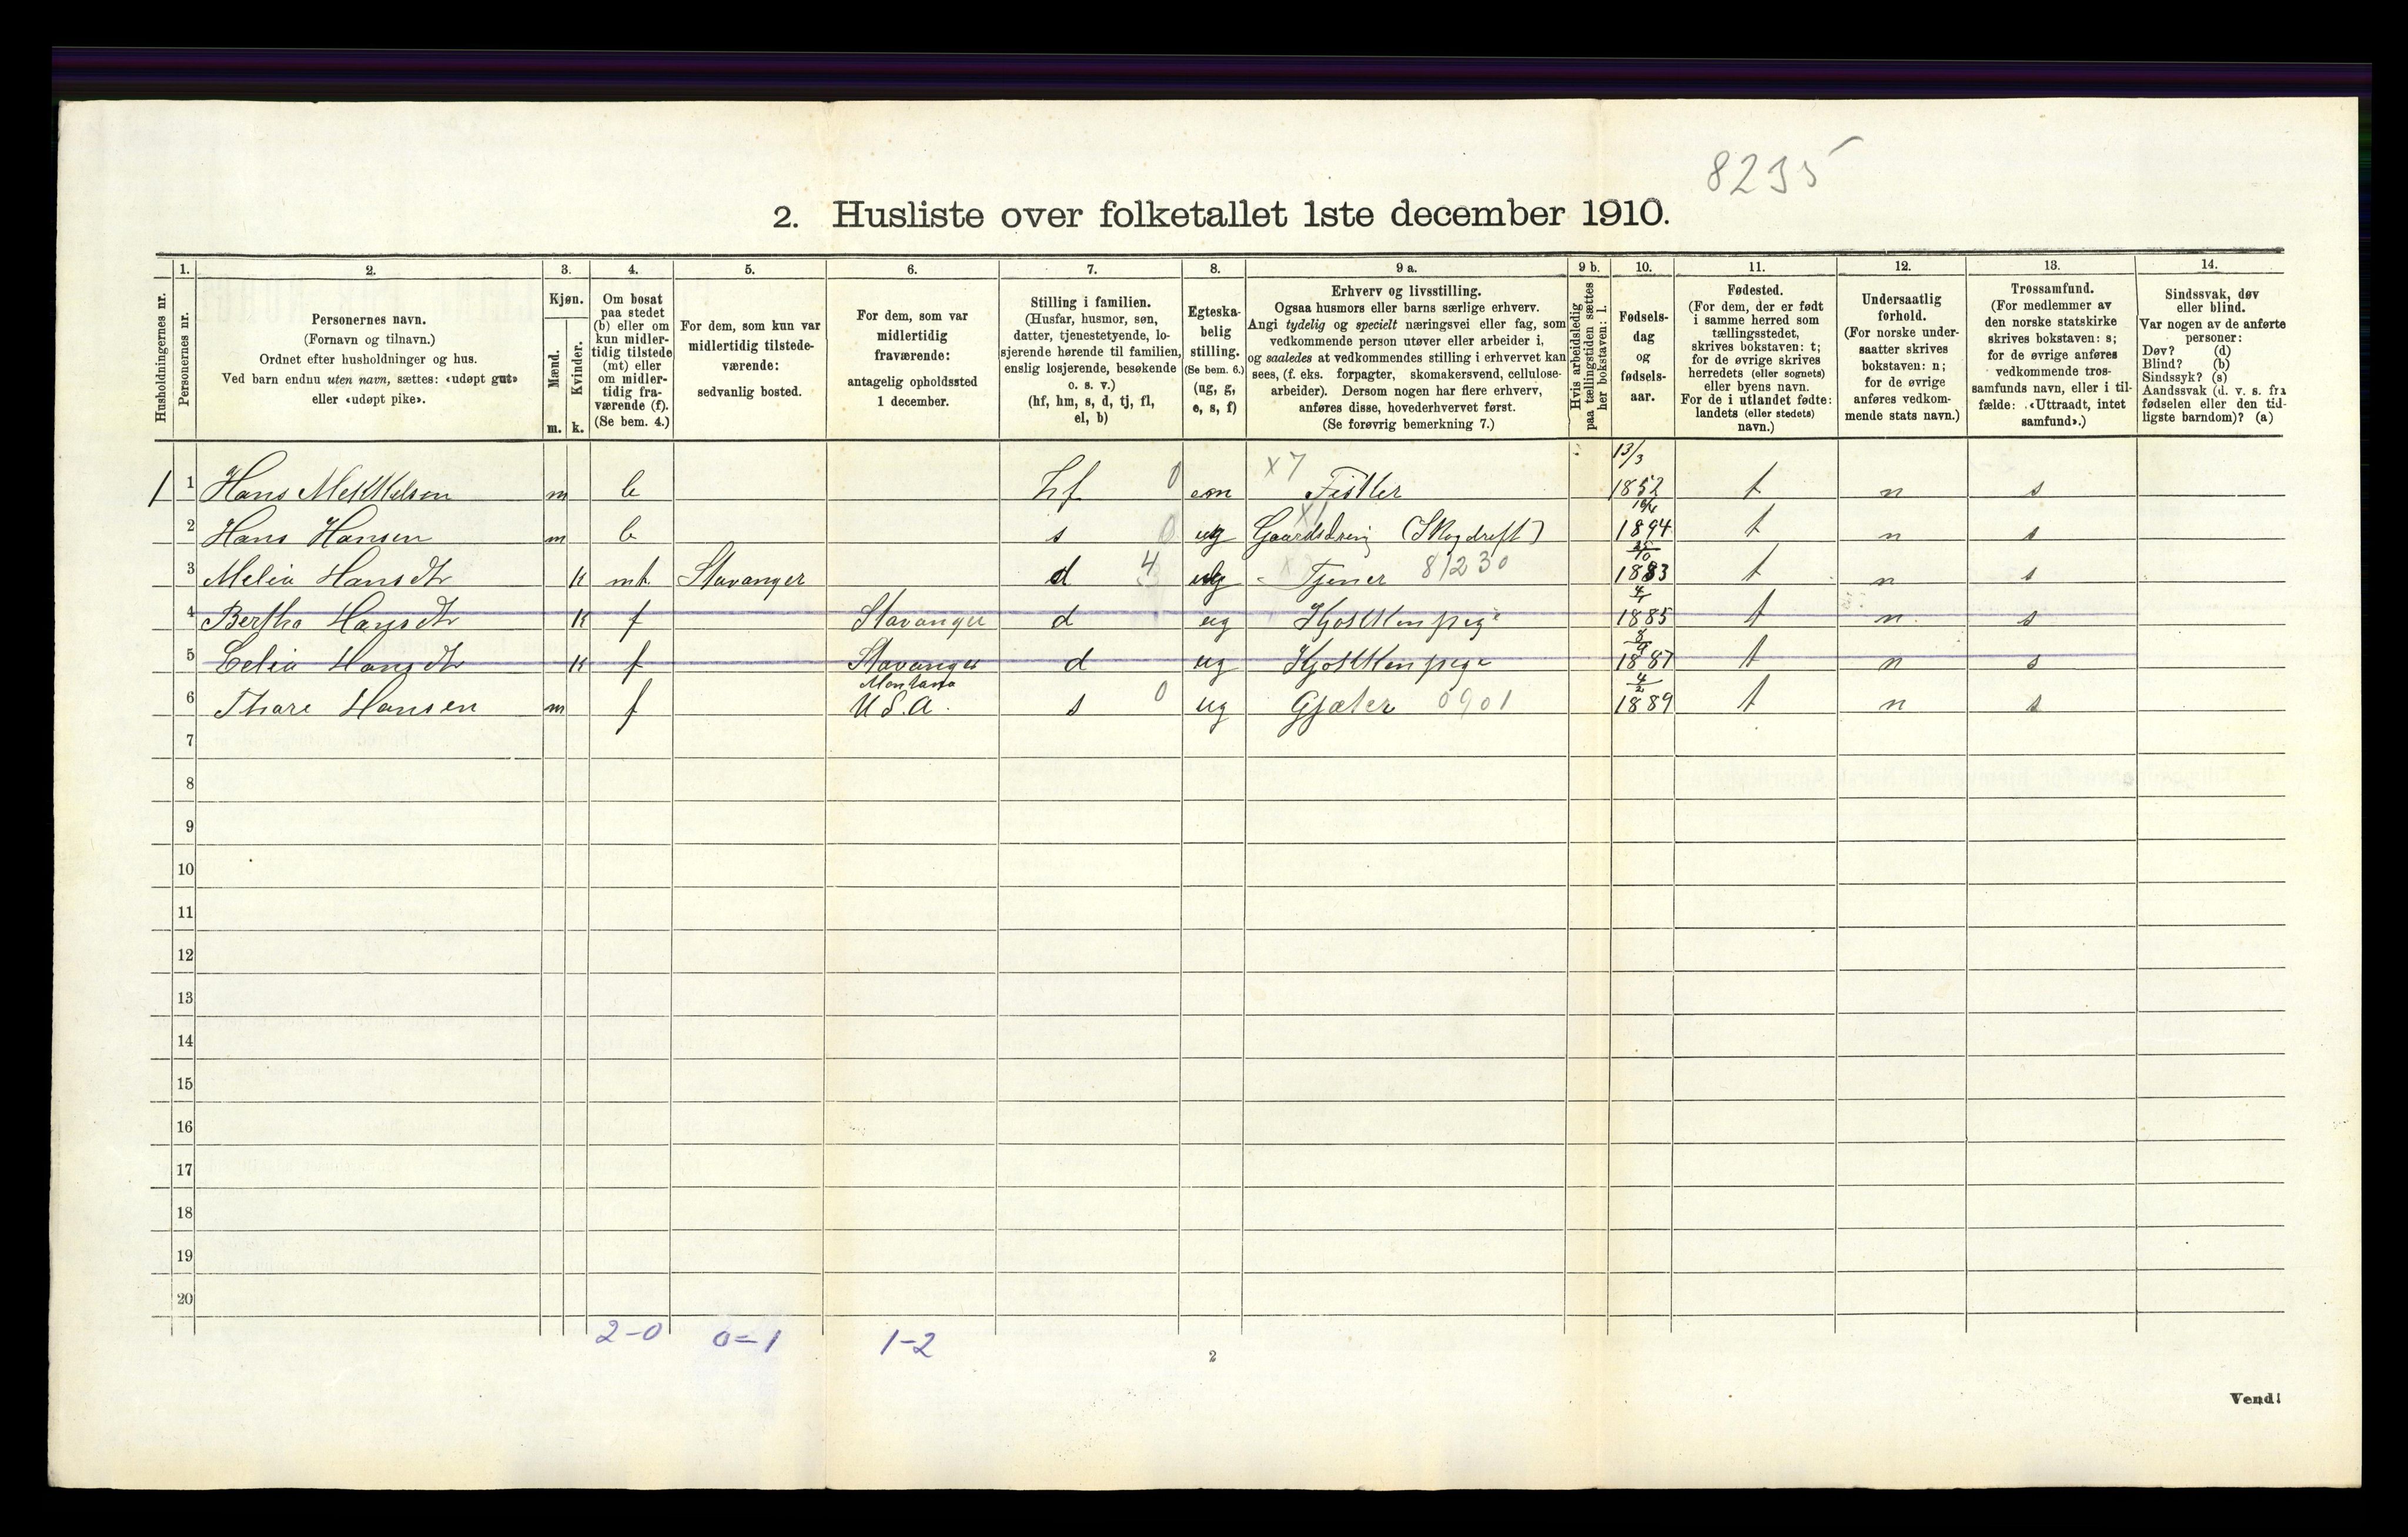 8235
2. Husliste over folketallet 1ste december 1910.
Husholdningernes nr.
1.
Personernes nr.
2.
Personernes navn.
(Fornavn og tilnavn.)
Ordnet efter husholdninger og hus.
Ved barn endnu uten navn, sættes: «udøpt gut»
eller «udøpt pike».
3.
Kjøn.
Mænd.
Kvinder.
m. k.
4.
Om bosat
paa stedet
(b) eller om
kun midler-
tidig tilstede
(mt) eller
om midler-
tidig fra-
værende (f).
(Se bem. 4.)
5.
For dem, som kun var
midlertidig tilstede-
værende:
sedvanlig bosted.
6.
For dem, som var
midlertidig
fraværende:
antagelig opholdssted
1 december.
7.
Stilling i familien.
(Husfar, husmor, søn,
datter, tjenestetyende, lo-
sjerende hørende til familien,
enslig losjerende, besøkende
o. s. v.)
(hf, hm, s, d, tj, fl,
el, b)
8.
Egteska-
belig
stilling.
(Se bem. 6.)
(ug, g,
e, s, f)
9 a.
Erhverv og livsstilling.
Ogsaa husmors eller barns særlige erhverv.
Angi tydelig og specielt næringsvei eller fag, som
vedkommende person utøver eller arbeider i,
og saaledes at vedkommendes stilling i erhvervet kan
sees, (f. eks. forpagter, skomakersvend, cellulose-
arbeider). Dersom nogen har flere erhverv,
anføres disse, hovederhvervet først.
(Se forøvrig bemerkning 7.)
9 b.
Hvis arbeidsledig
paa tællingstiden sættes
her bokstaven: l.
10.
Fødsels-
dag
og
fødsels-
aar.
11.
Fødested.
(For dem, der er født
i samme herred som
tællingsstedet,
skrives bokstaven: t;
for de øvrige skrives
herredets (eller sognets)
eller byens navn.
For de i utlandet fødte:
landets (eller stedets)
navn.)
12.
Undersaatlig
forhold.
(For norske under-
saatter skrives
bokstaven: n;
for de øvrige
anføres vedkom-
mende stats navn.)
13.
Trossamfund.
(For medlemmer av
den norske statskirke
skrives bokstaven: s;
for de øvrige anføres
vedkommende tros-
samfunds navn, eller i til-
fælde: «Uttraadt, intet
samfund».)
14.
Sindssvak, døv
eller blind.
Var nogen av de anførte
personer:
Døv? (d)
Blind? (b)
Sindssyk? (s)
Aandssvak (d. v. s. fra
fødselen eller den tid-
ligste barndom)? (a)
1 1 Hans Mekkelsen m b hf 0 em x7 Fisker 13/3 1852 t n s
2 Hans Hansen m b s 0 ug x1 Gaardsdreng (Skogdrift) 1894 t n s
3 Melia Hansdtr k mt Stavanger d 4 ug Tjener 81230 1883 t n s
4 Bertha Hansdtr k f Stavanger d ug Kjøkkenpige 1885 t n s
5 Celia Hansdtr k f Stavanger d ug Kjøkkenpige 8/9 1887 t n s
6 Thore Hansen m f Montana U.S.A. s 0 ug Gjæter 0901 4/2 1889 t n s
7
8
9
10
11
12
13
14
15
16
17
18
19
20
2-0 0=1 1-2
2
Vend!